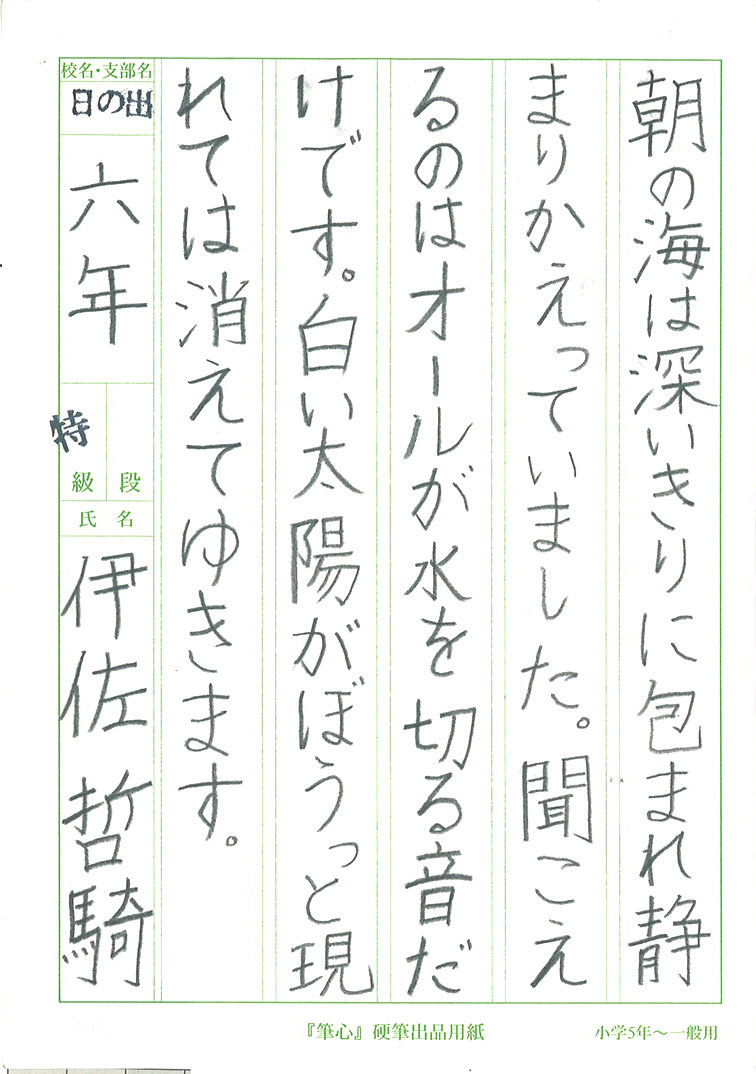 朝の海は深いきりに包まれ静
まりかえっていました。聞こえ
るのはオールが水を切る音だ
けです。白い太陽がぼうっと現
れては消えてゆきます。
校名・支部名
日の出
六年
段
級
特
氏名
伊佐哲騎
『筆心』硬筆出品用紙
小学5年〜一般用